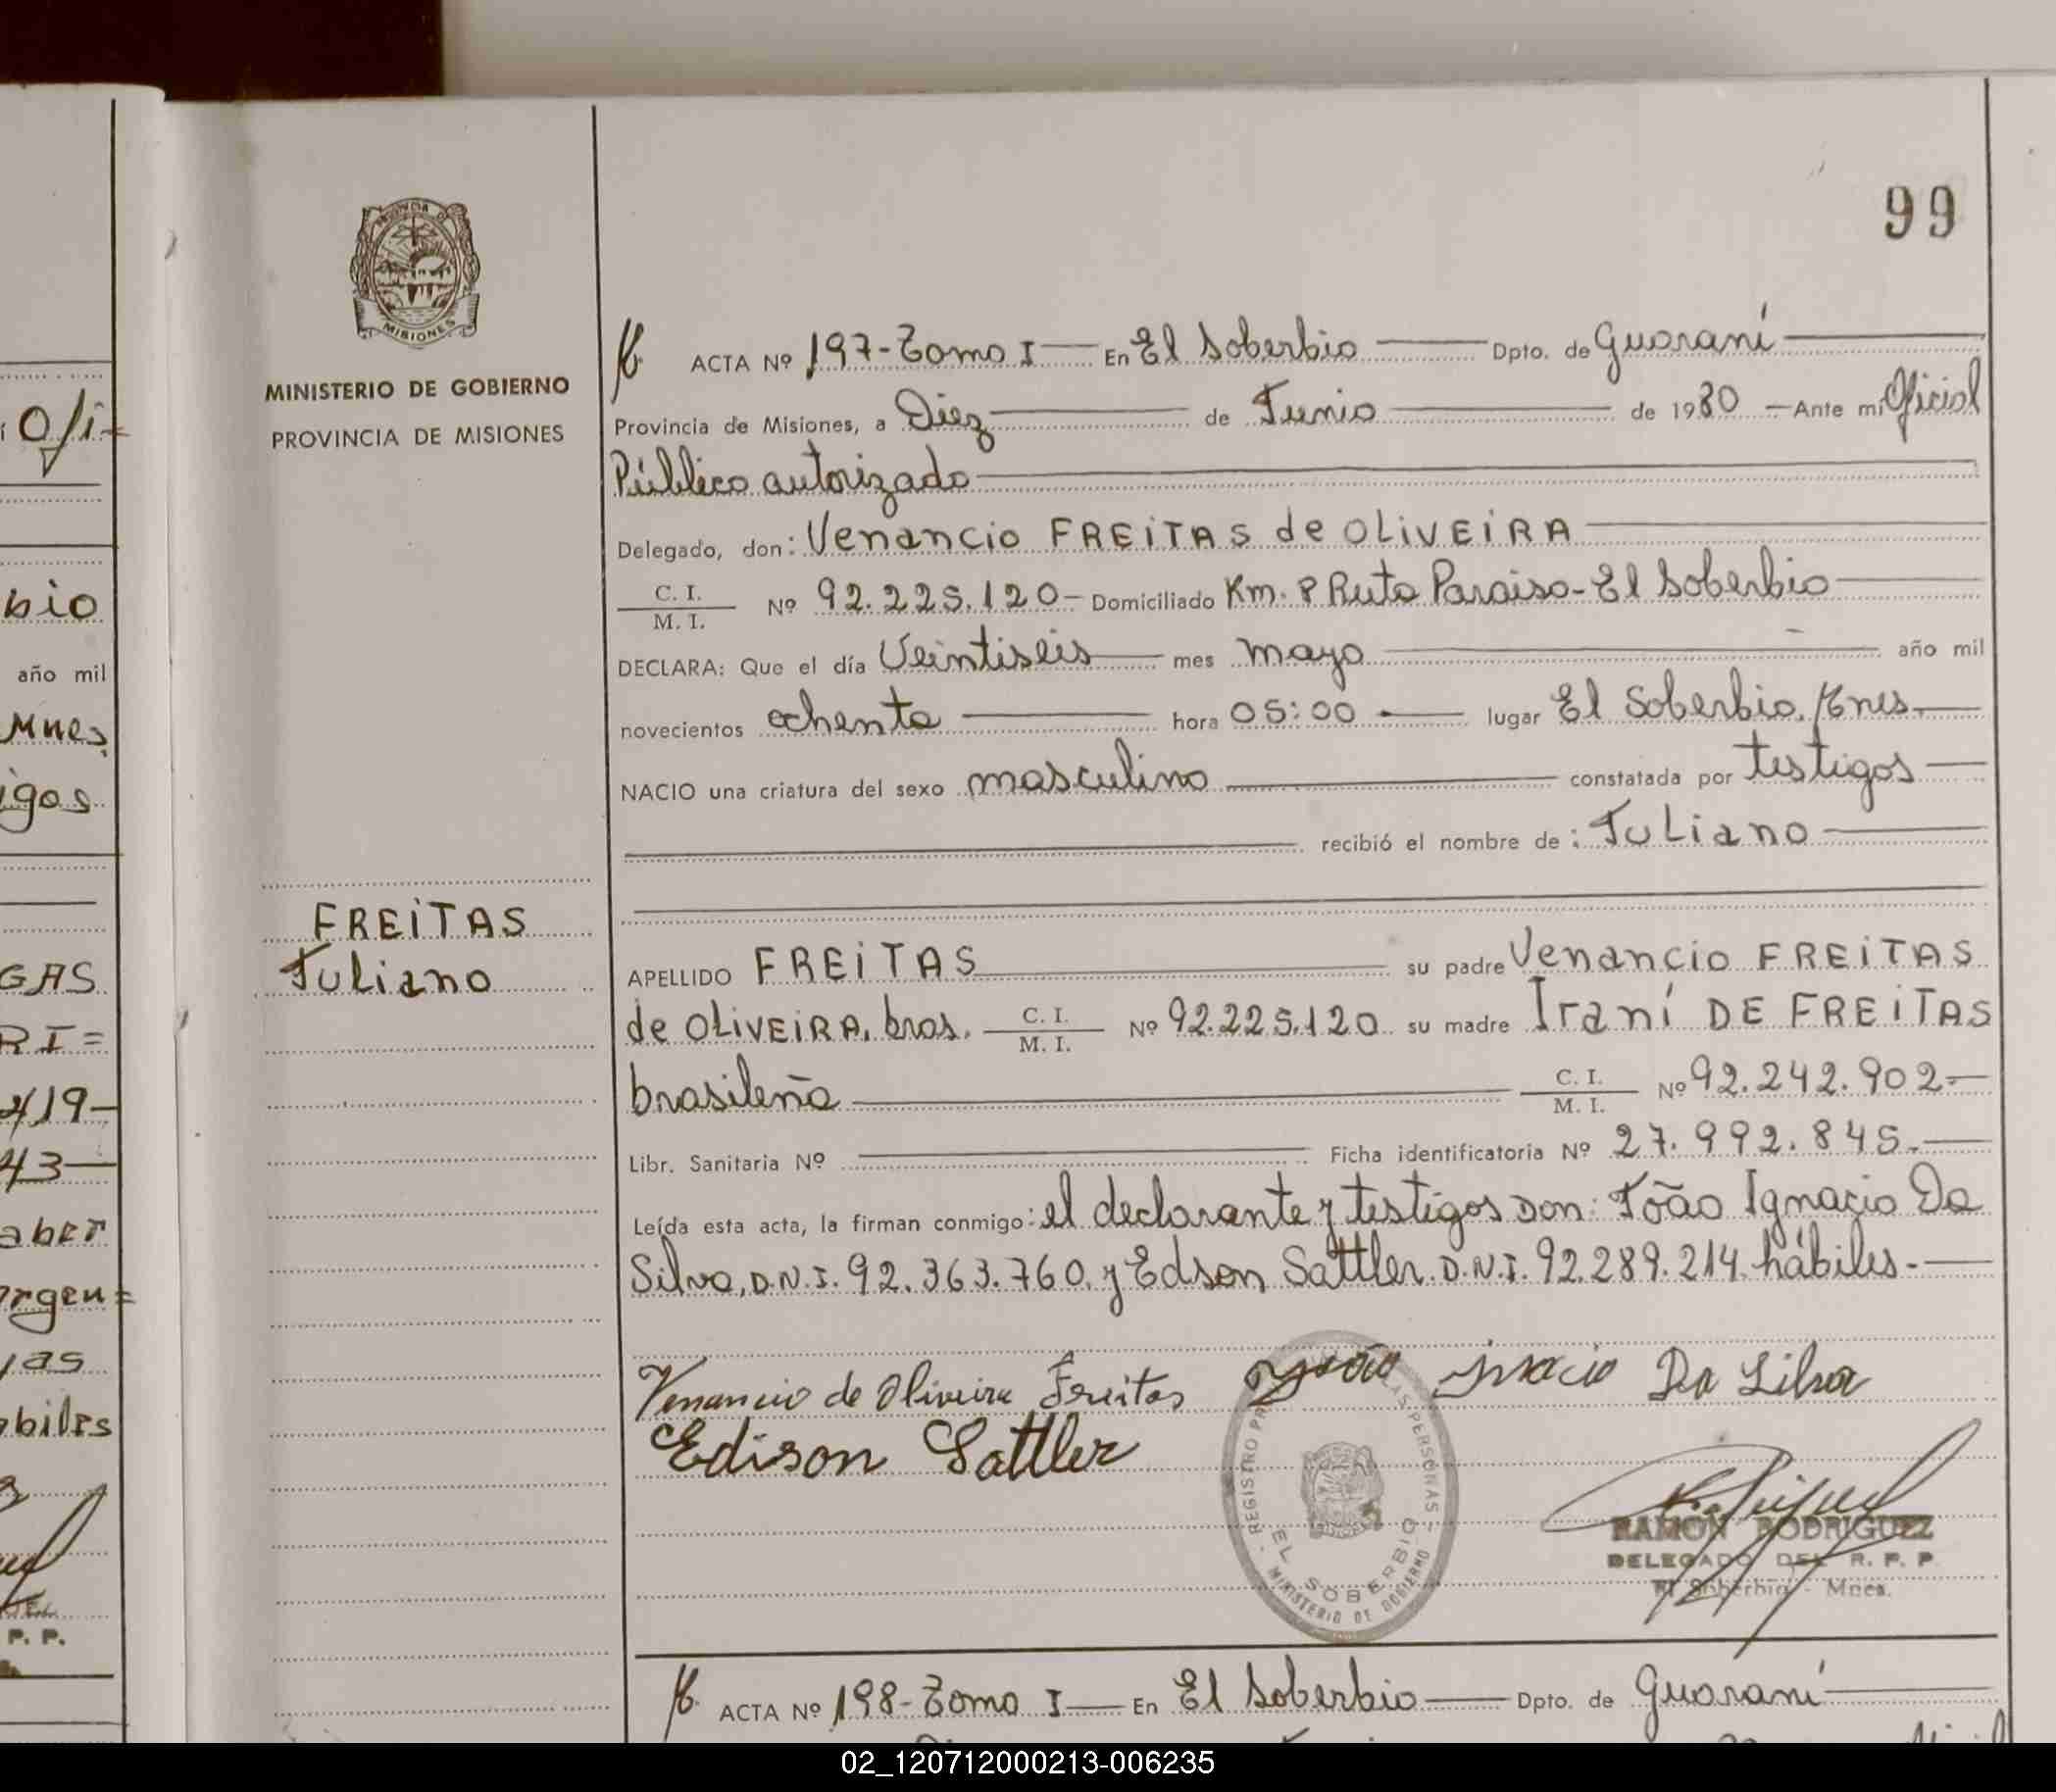 99
PROVINCIA DE
MISIONES
MINISTERIO DE GOBIERNO
PROVINCIA DE MISIONES
FREITAS
Juliano
ACTA Nº 197-Tomo I En El Soberbio Dpto. de Guaraní
Provincia de Misiones, a Diez de Junio de 1980 Ante mí Oficial
Público autorizado
Delegado, don: Venancio FREITAS de OLIVEIRA
C. I.
M. I. Nº 92.225.120- Domiciliado Km. 8 Ruta Paraiso-El Soberbio
DECLARA: Que el día Veintiseis mes mayo año mil
novecientos ochenta hora 05:00 lugar El Soberbio, Mnes.
NACIO una criatura del sexo masculino constatada por testigos
recibió el nombre de: Juliano
APELLIDO FREITAS su padre Venancio FREITAS
de OLIVEIRA, bras. C. I. M. I. Nº 92.225.120 su madre Iraní DE FREITAS
brasileña C. I. M. I. Nº 92.242.902-
Libr. Sanitaria Nº Ficha identificatoria Nº 27.992.845.-
Leída esta acta, la firman conmigo: el declarante y testigos Don: João Ignacio Da
Silva, D.N.I. 92.363.760. y Edson Sattler D.N.I. 92.289.214. hábiles.-
Venancio de Oliveira Freitas João Inacio Da Silva
Edison Sattler
EL SOBERBIO
MINISTERIO DE GOBIERNO
RAMON RODRIGUEZ
DELEGADO DEL R. P. P.
El Soberbio - Mnes.
ACTA Nº 198-Tomo I En El Soberbio Dpto. de Guaraní
bio
año mil
Mnes.
igos
GAS
RI=
419-
43
aber
argen=
jas
biles
P. P.
02_120712000213-006235